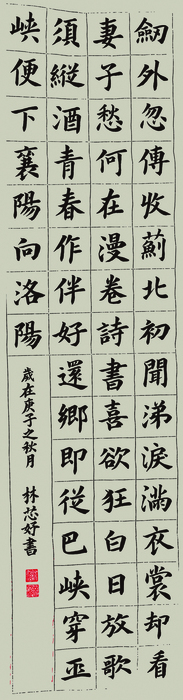 劒外忽傳收薊北初聞涕淚滿衣裳却看
妻子愁何在漫卷詩書喜欲狂白日放歌
須縱酒青春作伴好還鄉即從巴峽穿巫
峽便下襄陽向洛陽
歲在庚子之秋月 林芯妤書